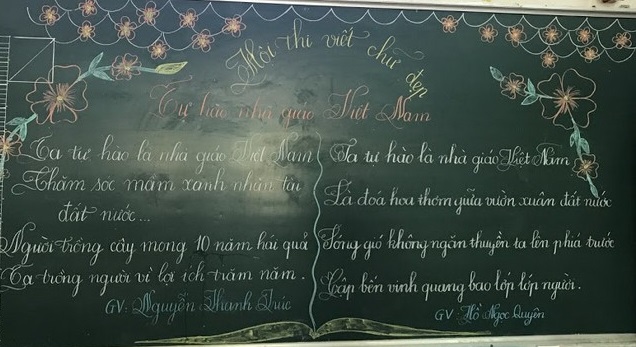 Hội thi viết chữ đẹp
Tự hào nhà giáo Việt Nam
Ta tự hào là nhà giáo Việt Nam
Chăm sóc mầm xanh nhân tài
đất nước...
Người trồng cây mong 10 năm hái quả
Ta trồng người vì lợi ích trăm năm.
GV: Nguyễn Thanh Trúc
Ta tự hào là nhà giáo Việt Nam
Là đoá hoa thơm giữa vườn xuân đất nước
Sóng gió không ngăn thuyền ta lên phía trước
Cập bến vinh quang bao lớp lớp người.
GV: Hồ Ngọc Quyên